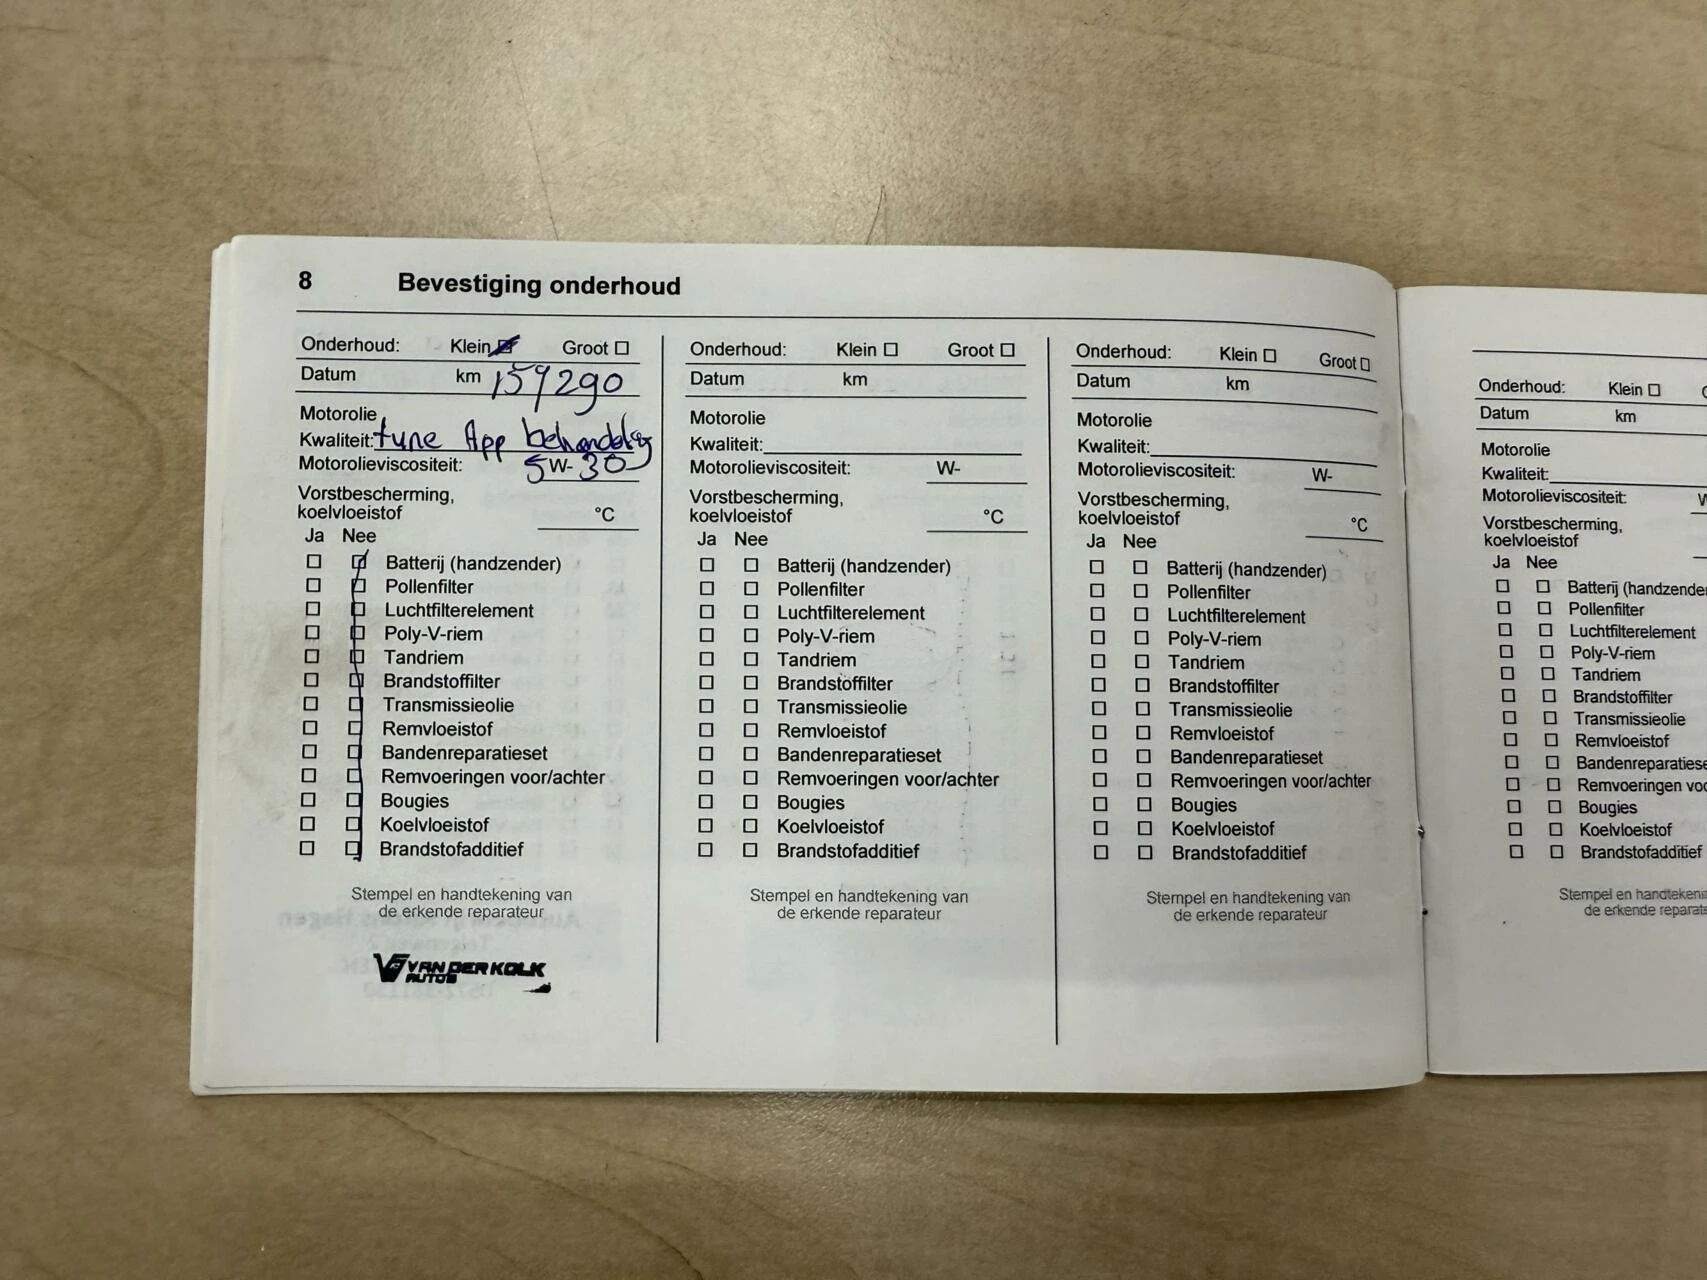 8 Bevestiging onderhoud
Onderhoud: Klein Groot
Datum km 159290
Motorolie
Kwaliteit: tune App behandeling
Motorolieviscositeit: 5W-30
Vorstbescherming,
koelvloeistof °C
Ja Nee
Batterij (handzender)
Pollenfilter
Luchtfilterelement
Poly-V-riem
Tandriem
Brandstoffilter
Transmissieolie
Remvloeistof
Bandenreparatieset
Remvoeringen voor/achter
Bougies
Koelvloeistof
Brandstofadditief
Stempel en handtekening van
de erkende reparateur
VAN DER KOLK
AUTO'S
Onderhoud: Klein Groot
Datum km
Motorolie
Kwaliteit:
Motorolieviscositeit: W-
Vorstbescherming,
koelvloeistof °C
Ja Nee
Batterij (handzender)
Pollenfilter
Luchtfilterelement
Poly-V-riem
Tandriem
Brandstoffilter
Transmissieolie
Remvloeistof
Bandenreparatieset
Remvoeringen voor/achter
Bougies
Koelvloeistof
Brandstofadditief
Stempel en handtekening van
de erkende reparateur
Onderhoud: Klein Groot
Datum km
Motorolie
Kwaliteit:
Motorolieviscositeit: W-
Vorstbescherming,
koelvloeistof °C
Ja Nee
Batterij (handzender)
Pollenfilter
Luchtfilterelement
Poly-V-riem
Tandriem
Brandstoffilter
Transmissieolie
Remvloeistof
Bandenreparatieset
Remvoeringen voor/achter
Bougies
Koelvloeistof
Brandstofadditief
Stempel en handtekening van
de erkende reparateur
Onderhoud: Klein
Datum km
Motorolie
Kwaliteit:
Motorolieviscositeit:
Vorstbescherming,
koelvloeistof
Ja Nee
Batterij (handzender
Pollenfilter
Luchtfilterelement
Poly-V-riem
Tandriem
Brandstoffilter
Transmissieolie
Remvloeistof
Bandenreparatiese
Remvoeringen voo
Bougies
Koelvloeistof
Brandstofadditief
Stempel en handtekenin
de erkende reparate